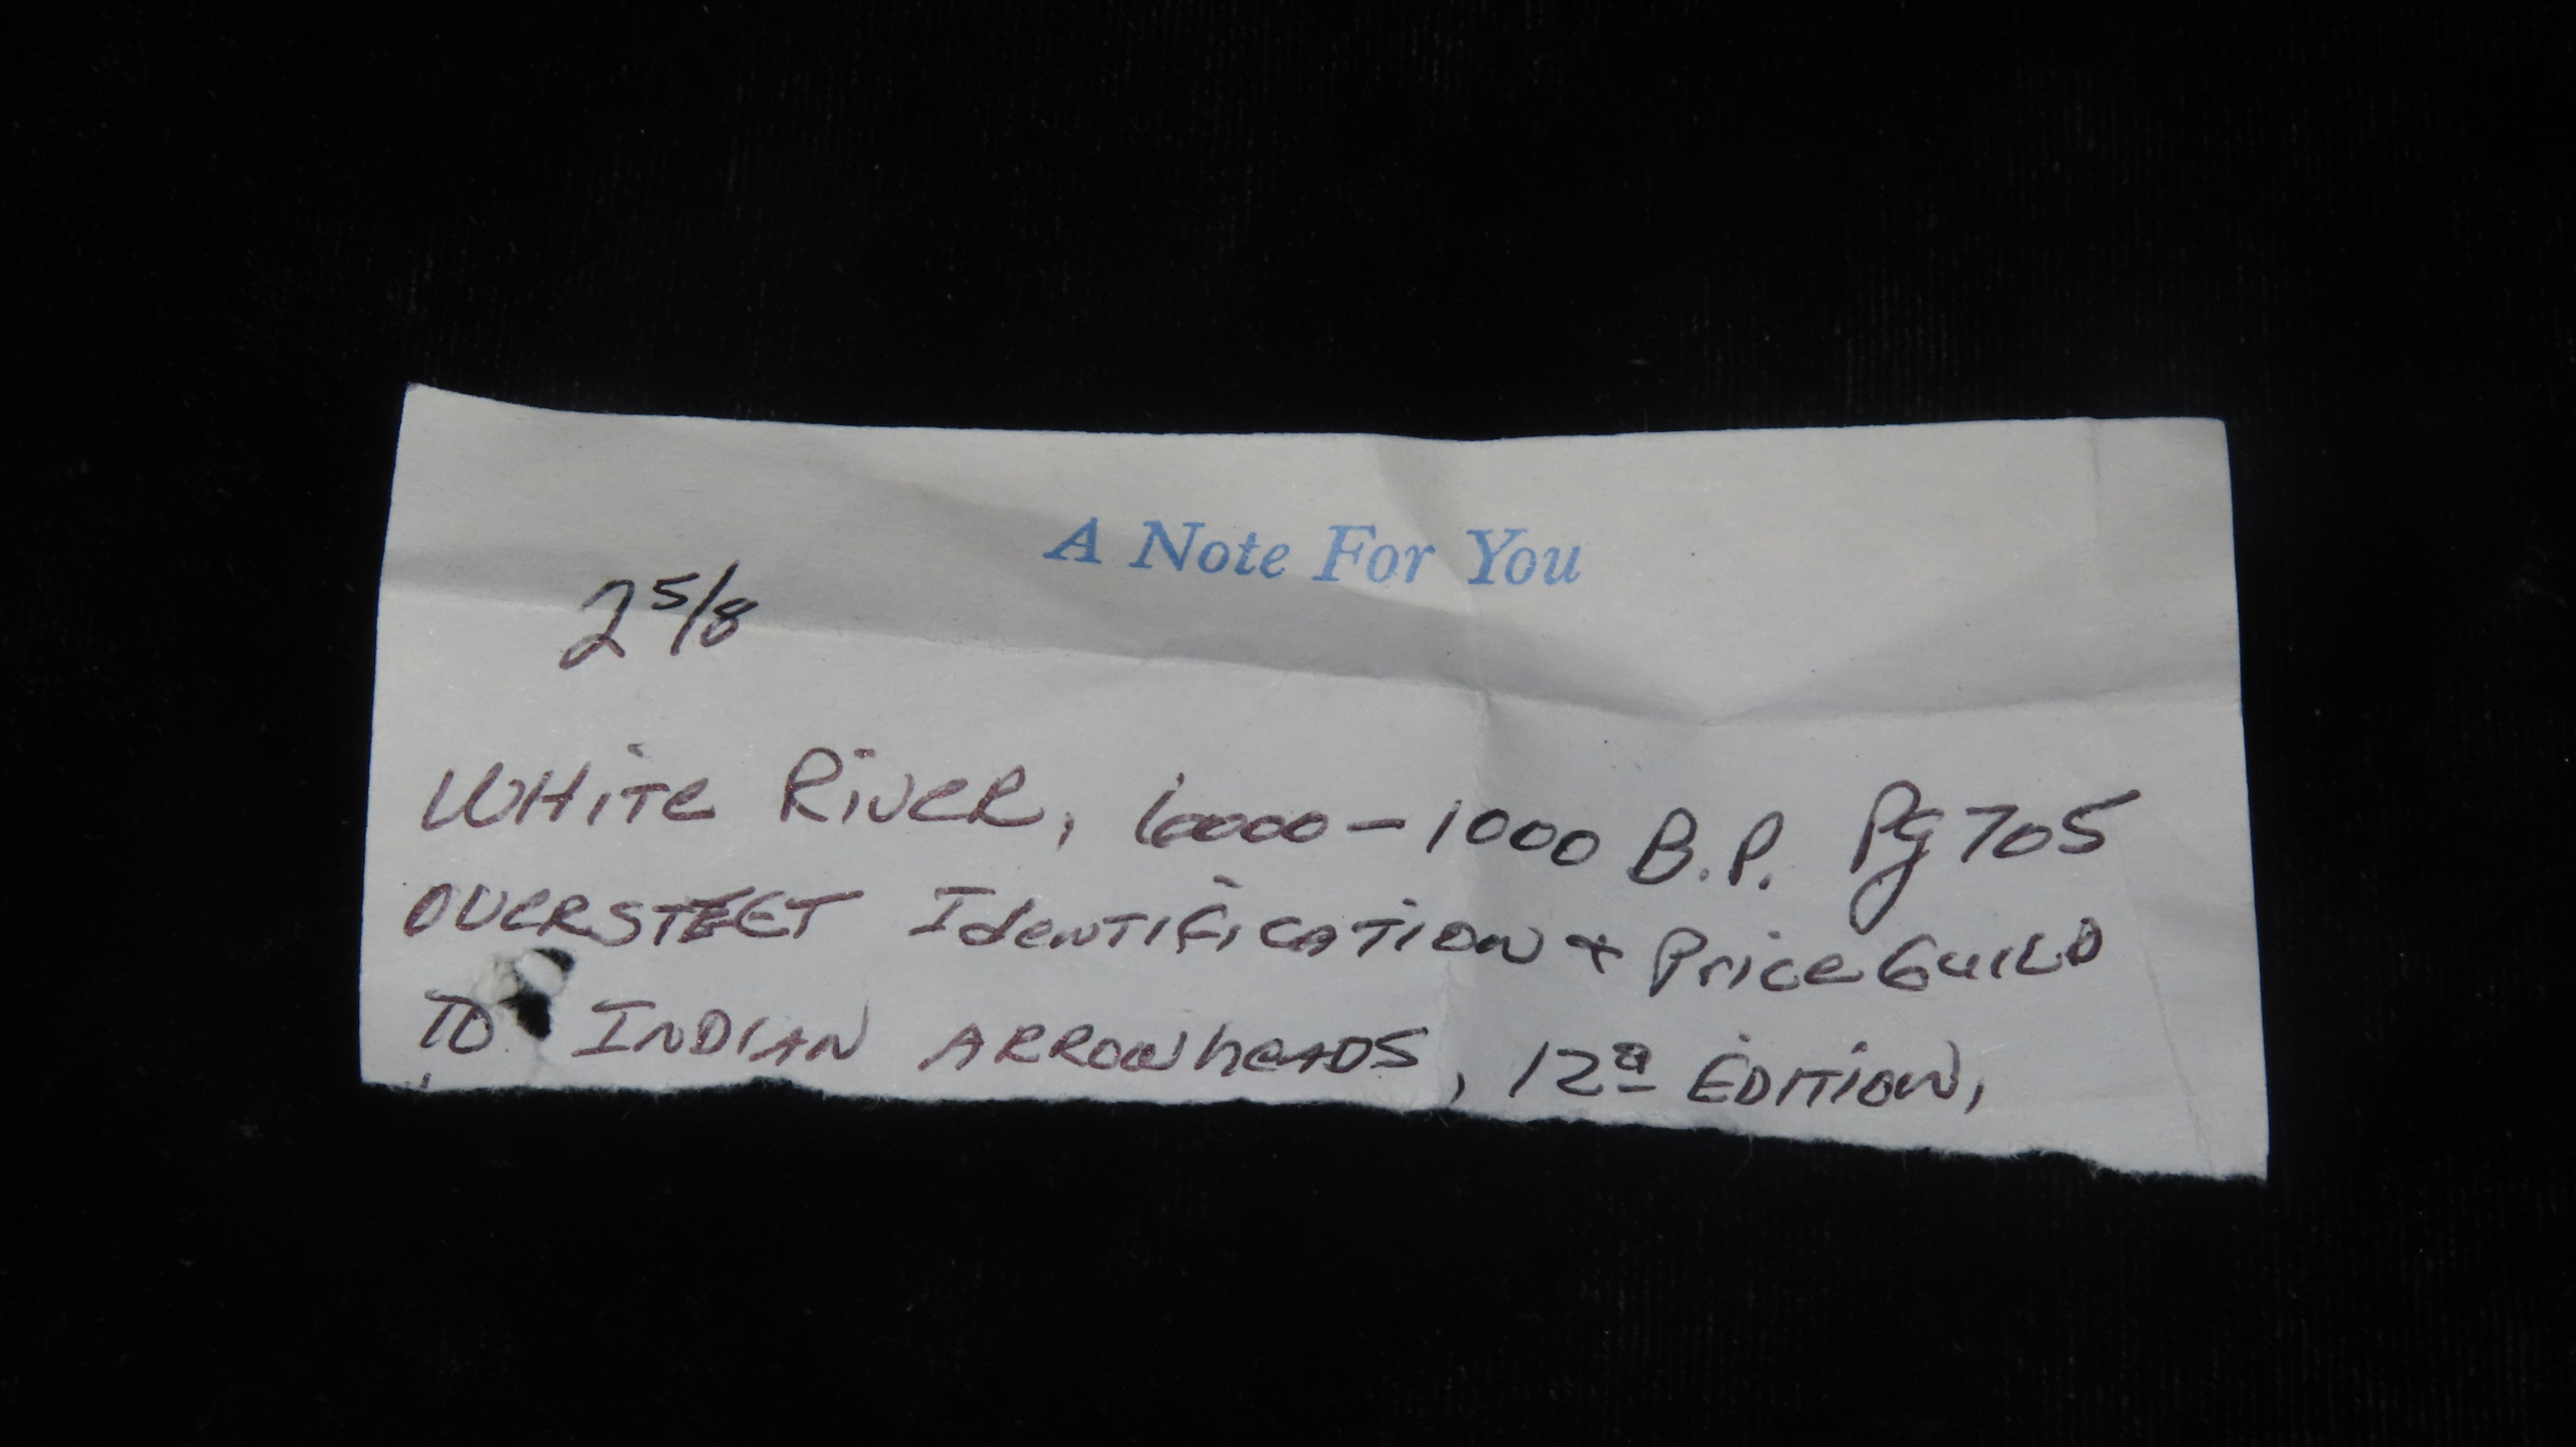 A Note For You
2 5/8
WHiTe RiveR, 10000-1000 B.P. Pg 705
OVERSTEET IdenTiFicATiON + Price GuiLD
TO INDIAN ARROWheADS, 12ª EDITiON,